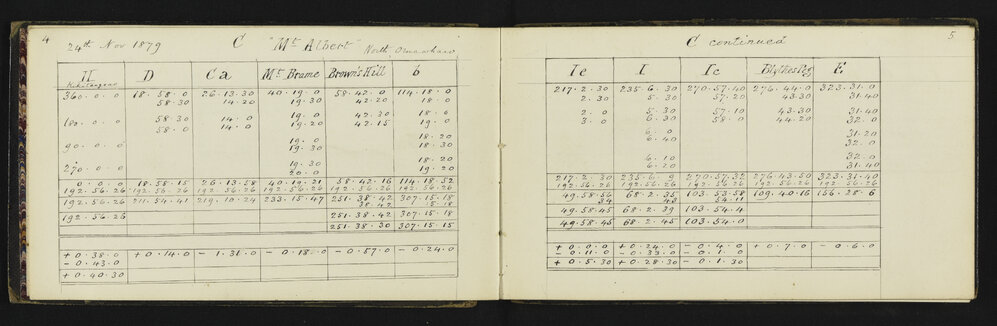 4
24th Nov 1879 C "Mt Albert" North
H D Ca Mt Brame Brown's Hill b
360. 0. 0 18. 58. 0 26. 13. 30 40. 19. 0 58. 42. 0 114. 18. 0
58. 30 14. 20 19. 30 42. 20 18. 0
180. 0. 0 58. 30 14. 0 19. 0 42. 30 18. 0
58. 0 14. 0 19. 20 42. 15 19. 0
19. 0 18. 20
90. 0. 0 19. 30 18. 30
19. 30 18. 20
270. 0. 0 20. 0 19. 20
0. 0. 0 18. 58. 15 26. 13. 58 40. 19. 21 58. 42. 16 114. 18. 52
192. 56. 26 192. 56. 26 192. 56. 26 192. 56. 26 192. 56. 26 192. 56. 26
192. 56. 26 211. 54. 41 219. 10. 24 233. 15. 47 251. 38. 42 307. 15. 18
38. 42 15. 18
192. 56. 26 251. 38. 42 307. 15. 18
251. 38. 30 307. 15. 15
+ 0. 38. 0 + 0. 14. 0 - 1. 31. 0 - 0. 18. 0 - 0. 57. 0 - 0. 24. 0
- 0. 43. 0
+ 0. 40. 30
5
C continued
Ie I Ic Blythes Peg E
217. 2. 30 235. 6. 30 270. 57. 40 276. 44. 0 323. 31. 0
2. 30 5. 30 57. 20 43. 30 31. 40
2. 0 5. 30 57. 10 43. 30 31. 40
3. 0 6. 30 58. 0 44. 20 32. 0
6. 0 31. 20
6. 40 32. 0
6. 10 32. 0
6. 20 31. 40
217. 2. 30 235. 6. 9 270. 57. 32 276. 43. 50 323. 31. 40
192. 56. 26 192. 56. 26 192. 56. 26 192. 56. 26 192. 56. 26
49. 58. 56 68. 2. 35 103. 53. 58 109. 40. 16 156. 28. 6
34 54. 11
49. 58. 45 68. 2. 39 103. 54. 4
49. 58. 45 68. 2. 45 103. 54. 0
+ 0. 0. 0 + 0. 24. 0 - 0. 4. 0 + 0. 7. 0 - 0. 6. 0
- 0. 11. 0 - 0. 33. 0 - 0. 1. 0
+ 0. 5. 30 + 0. 28. 30 - 0. 1. 30